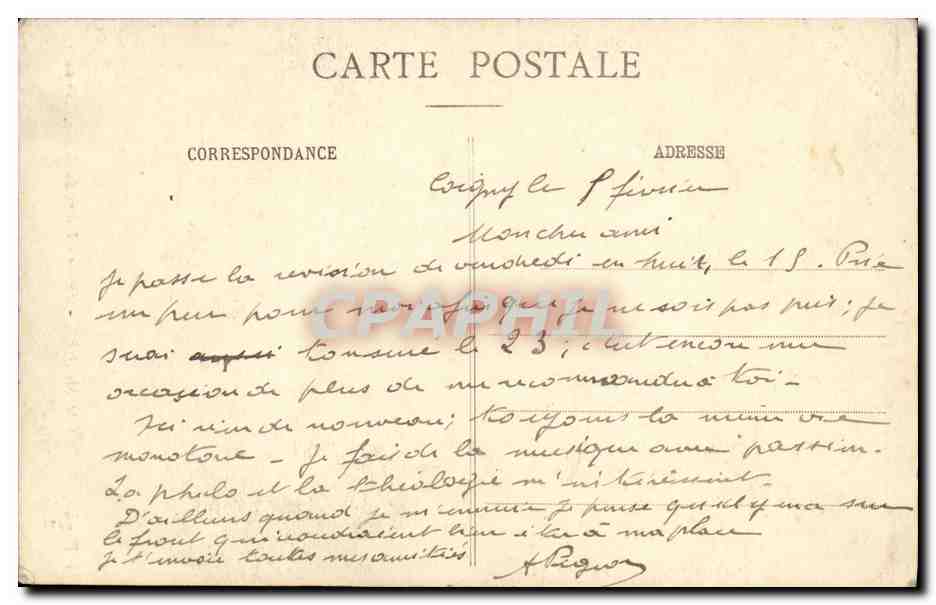 CARTE POSTALE
CORRESPONDANCE
ADRESSE
le 5 février
Mon cher ami
Je passe la révision de vendredi en huit, le 15. Prie
un peu pour moi afin que je ne sois pas pris; je
serai tonsuré le 23; c'est encore une
occasion de plus de me recommander à toi -
Ici rien de nouveau; toujours la même vie
monotone - Je fais de la musique avec passion.
La philo et la théologie m'intéressent.
D'ailleurs quand je m'ennuie je pense qu'il y en a sur
le front qui voudraient bien être à ma place
Je t'envoie toutes mes amitiés
CPAPHIL